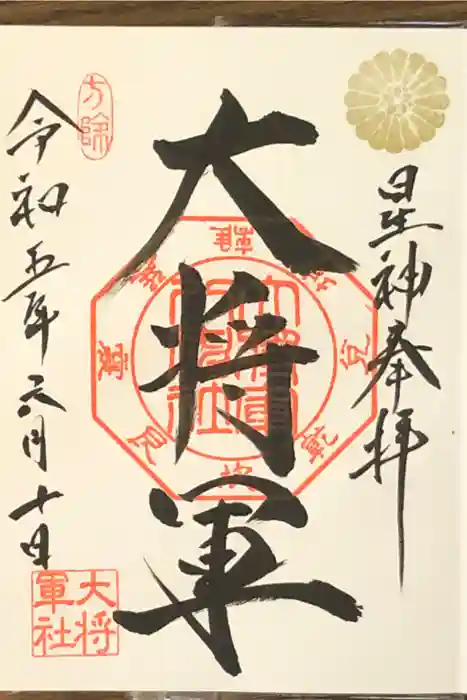 星神奉拝
大将軍
方除
令和五年六月十日
大将
軍社